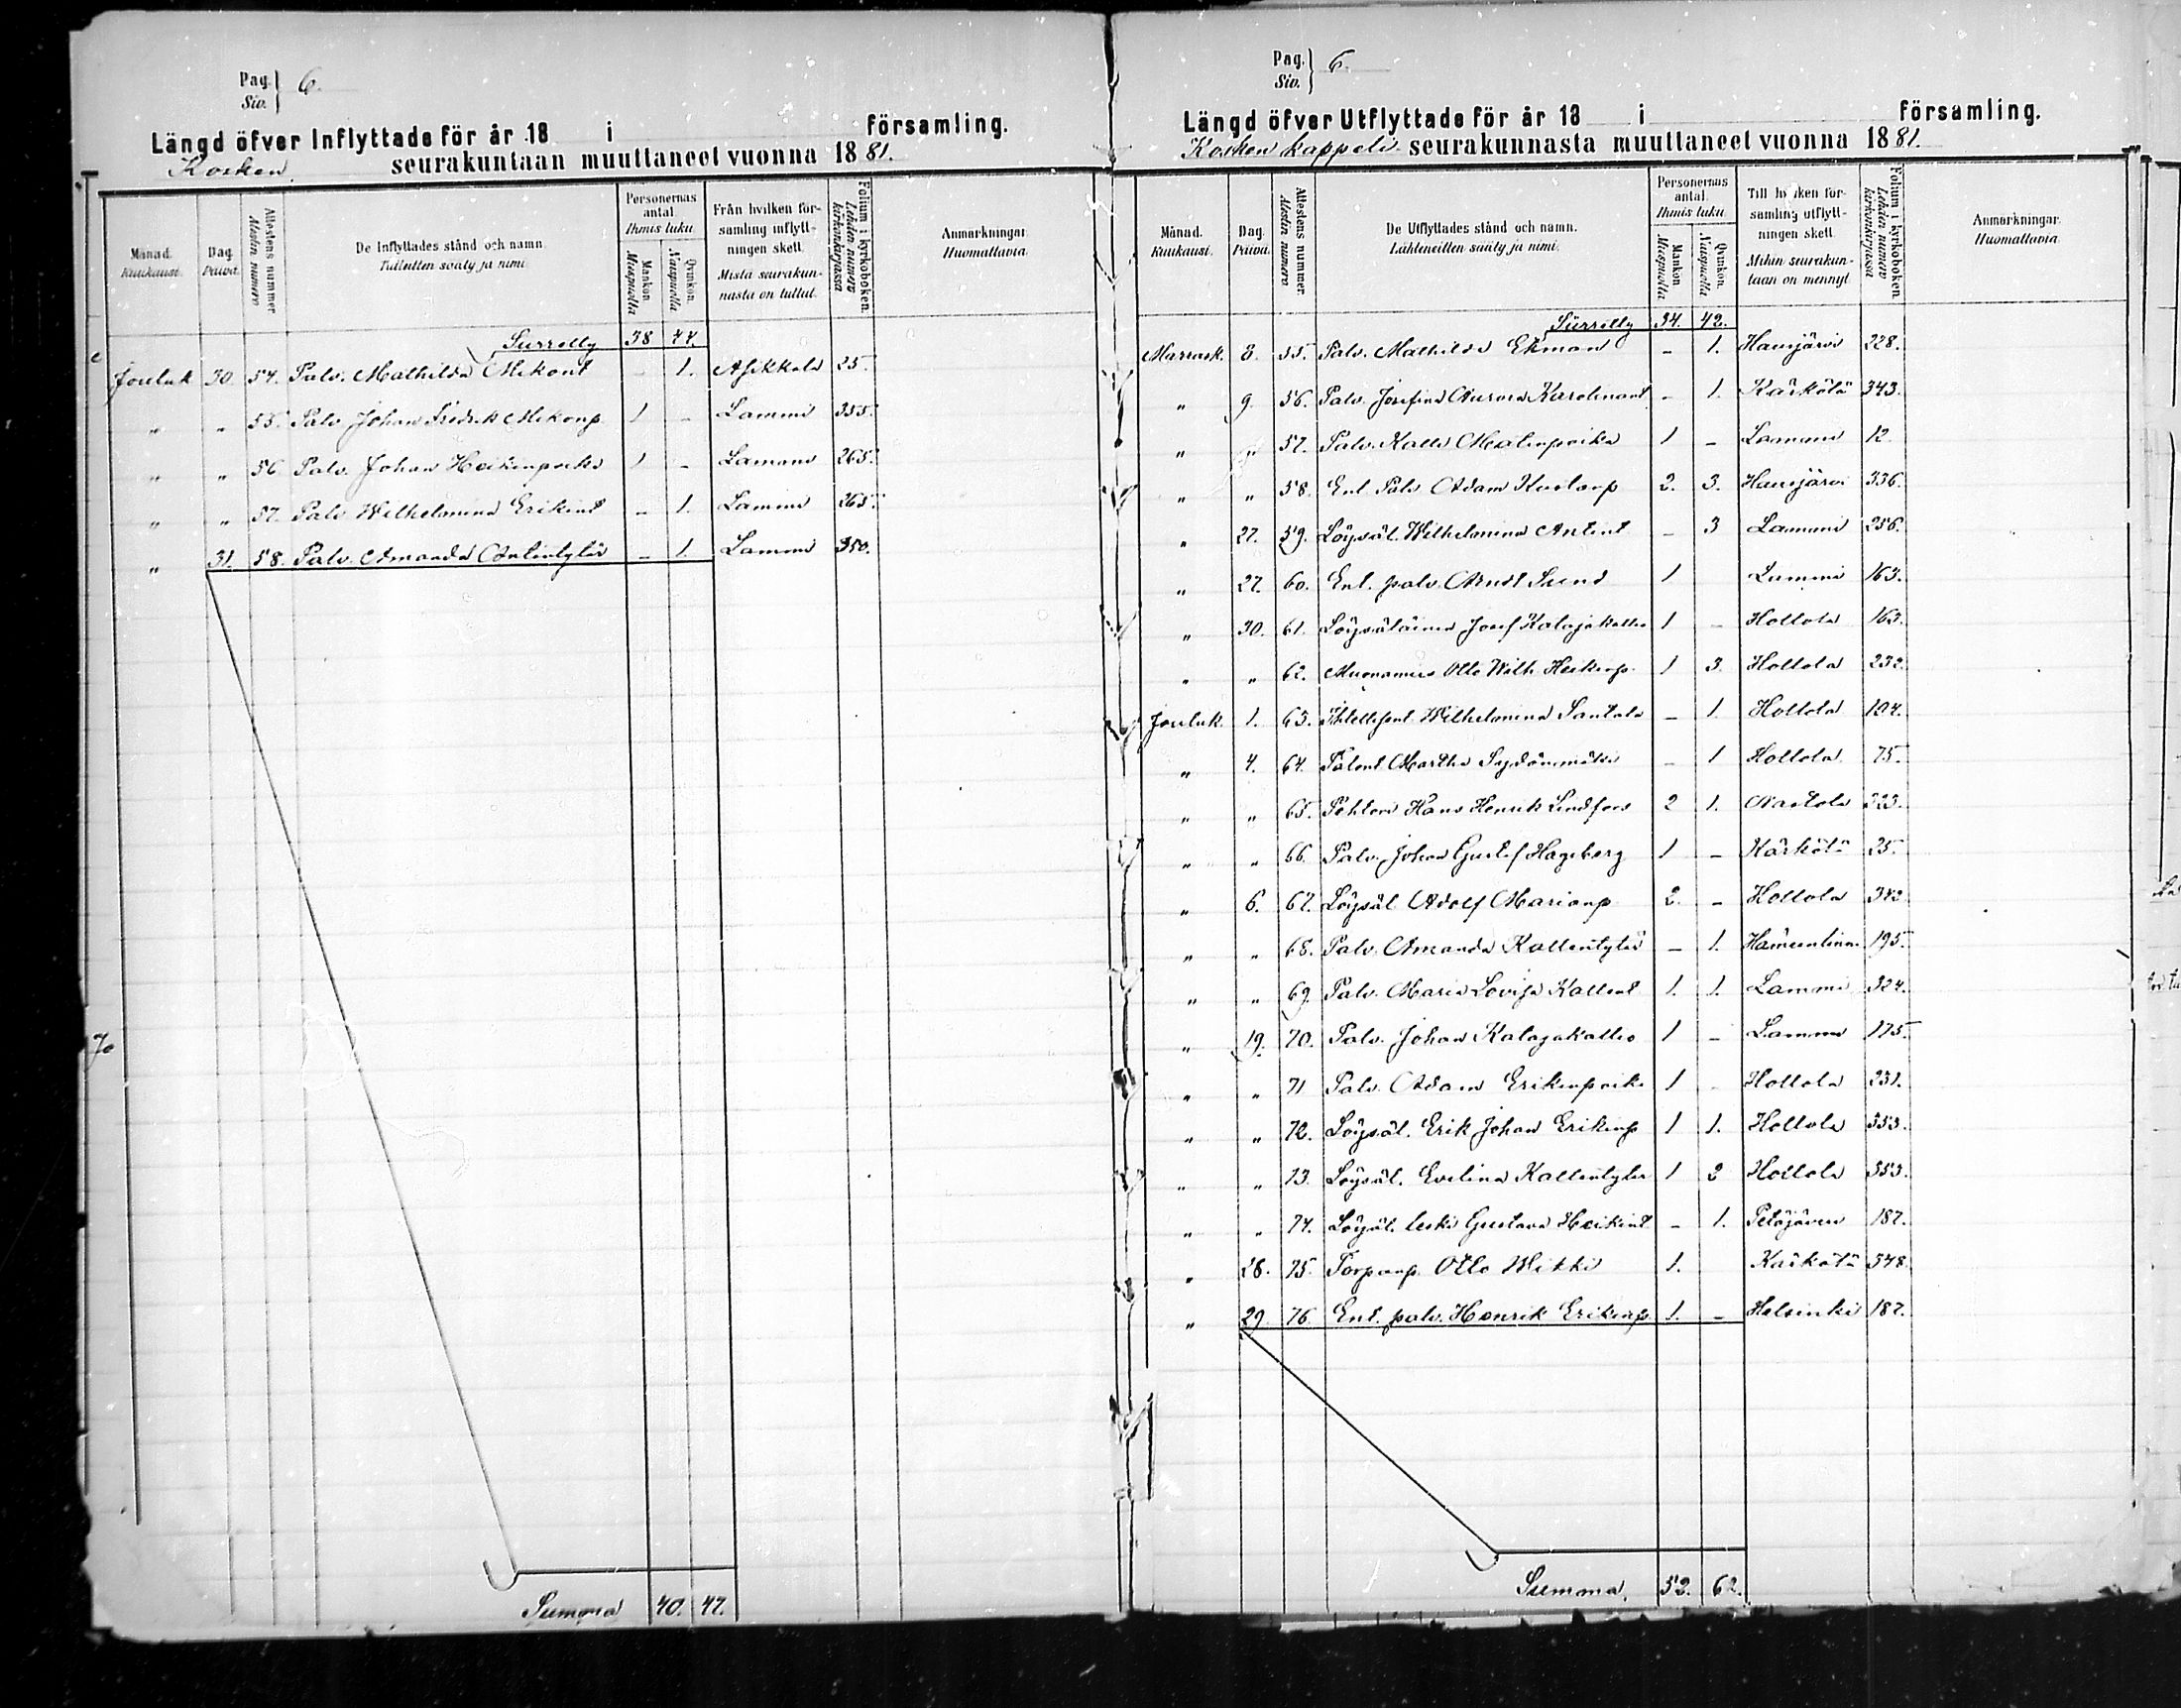 Pag. Siv. } 6.
Längd öfver Inflyttade för år 18 i församling.
Kosken seurakuntaan muuttaneet vuonna 1881.
Månad. Kuukausi. | Dag. Päivä. | Attestens nummer Atestin numero | De Inflyttades stånd och namn. Tulleitten sääty ja nimi. | Personernas antal. Ihmis luku. Mankön. Miespuolta | Qvinkön. Naispuolta | Från hvilken församling inflyttningen skett. Mistä seurakunnasta on tullut. | Folium i kyrkoboken. Lehden numero kirkonkirjassa | Anmärkningar. Huomattavia.
Siirretty 38 44.
Jouluk. 30 54. Palv. Mathilda Mikont - 1. Asikkala 25.
" " 55. Palv. Johan Fredrik Mikonp. 1 - Lammi 355.
" " 56. Palv. Johan Heikinpoika 1 - Lammi 265.
" " 57. Palv. Wilhelmina Erikint - 1. Lammi 265.
" 31. 58. Palv. Amanda Antintytär - 1. Lammi 350.
Summa 40. 47.
Pag. Siv. } 6.
Längd öfver Utflyttade för år 18 i församling.
Kosken kappeli seurakunnasta muuttaneet vuonna 1881.
Månad. Kuukausi. | Dag. Päivä. | Attestens nummer. Atestin numero | De Utflyttades stånd och namn. Lähteneitten sääty ja nimi. | Personernas antal. Ihmis luku. Mankön. Miespuolta | Qvinkön. Naispuolta | Till hvilken församling utflyttningen skett. Mihin seurakuntaan on mennyt. | Folium i kyrkoboken. Lehden numero kirkonkirjassa | Anmärkningar. Huomattavia.
Siirretty 34. 42.
Marrask. 8. 55. Palv. Mathilda Ekman - 1. Hausjärvi 228.
" 9. 56. Palv. Josefina Aurora Karolinant - 1. Kärkölä 343.
" " 57. Palv. Kalle Matinpoika 1 - Lammi 12.
" " 58. Ent. Palv. Adam Kustaap 2. 3. Hausjärvi 336.
" 27. 59. Löysäl. Wilhelmina Antint - 3 Lammi 256.
" 27. 60. Ent. palv. Lund 1 Lammi 163.
" 30. 61. Löysäläinen Josef Katajakallio 1 - Hollola 163.
" " 62. Muonamies Otto Wilh. Heikinp. 1 3. Hollola 232.
Jouluk. 1. 63. Wilhelmina Santala - 1. Hollola 194.
" 4. 64. Talont. Martha Sydänmäki - 1 Hollola 75.
" " 65. Hans Henrik Lindfors 2 1. Nastola 323.
" " 66. Palv. Johan Gustaf Hagberg 1 - Kärkölä 25.
" 6. 67. Löysäl. Adolf Marianp 2. - Hollola 342.
" " 68. Palv. Amanda Kallentytär - 1. Hämeenlinna 195.
" " 69. Palv. Maria Lovisa Kallent 1. 1. Lammi 324.
" 19. 70. Palv. Johan Katajakallio 1 - Lammi 175.
" " 71 Palv. Adam Erikinpoika 1 - Hollola 231.
" " 72. Löysäl. Erik Johan Erikinp 1 1. Hollola 353.
" " 73. Löysäl. Evelina Kallentytär 1 2 Hollola 353.
" " 74. Löysäl. leski Gustava Heikint - 1. Petäjäven 187.
" 28. 75. Torpanp. Otto Witki 1. Kärkölä 348.
" 29. 76. Ent. palv. Henrik Erikinp. 1. - Helsinki 187.
Summa. 52. 62.